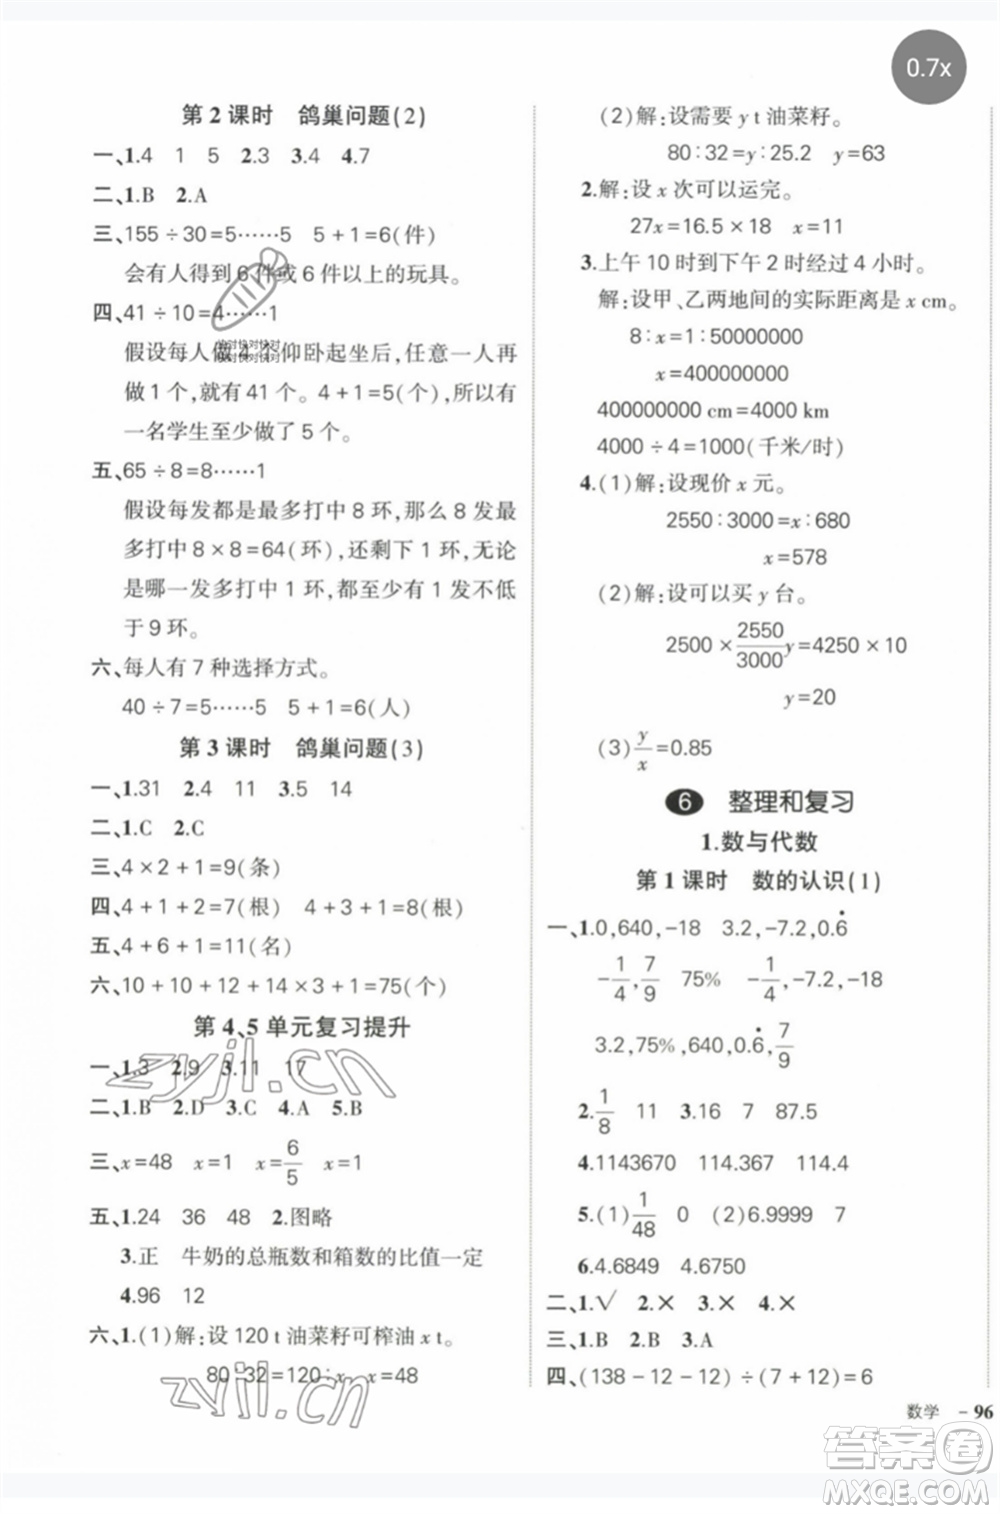 0.7x
第2课时 鸽巢问题(2)
一、1.4 1 5 2.3 3.4 4.7
二、1.B 2.A
三、155÷30=5……5 5+1=6(件)
会有人得到6件或6件以上的玩具。
四、41÷10=4……1
假设每人做4个仰卧起坐后,任意一人再
做1个,就有41个。4+1=5(个),所以有
一名学生至少做了5个。
五、65÷8=8……1
假设每发都是最多打中8环,那么8发最
多打中8×8=64(环),还剩下1环,无论
是哪一发多打中1环,都至少有1发不低
于9环。
六、每人有7种选择方式。
40÷7=5……5 5+1=6(人)
第3课时 鸽巢问题(3)
一、1.31 2.4 11 3.5 14
二、1.C 2.C
三、4×2+1=9(条)
四、4+1+2=7(根) 4+3+1=8(根)
五、4+6+1=11(名)
六、10+10+12+14×3+1=75(个)
第4、5单元复习提升
一、1.3 2.9 3.11 17
二、1.B 2.D 3.C 4.A 5.B
三、x=48 x=1 x=6/5 x=1
五、1.24 36 48 2.图略
3.正 牛奶的总瓶数和箱数的比值一定
4.96 12
六、1.(1)解:设120 t油菜籽可榨油x t。
80:32=120:x x=48
(2)解:设需要y t油菜籽。
80:32=y:25.2 y=63
2.解:设x次可以运完。
27x=16.5×18 x=11
3.上午10时到下午2时经过4小时。
解:设甲、乙两地间的实际距离是x cm。
8:x=1:50000000
x=400000000
400000000 cm=4000 km
4000÷4=1000(千米/时)
4.(1)解:设现价x元。
2550:3000=x:680
x=578
(2)解:设可以买y台。
2500×2550/3000y=4250×10
y=20
(3)y/x=0.85
6 整理和复习
1.数与代数
第1课时 数的认识(1)
一、1.0,640,-18 3.2,-7.2,0.6̇
-1/4,7/9 75% -1/4,-7.2,-18
3.2,75%,640,0.6̇,7/9
2.1/8 11 3.16 7 87.5
4.1143670 114.367 114.4
5.(1)1/48 0 (2)6.9999 7
6.4.6849 4.6750
二、1.√ 2.× 3.× 4.×
三、1.B 2.B 3.A
四、(138-12-12)÷(7+12)=6
数学 -96
zyjl.cn
zyjl.cn
答案圈
MXQE.COM